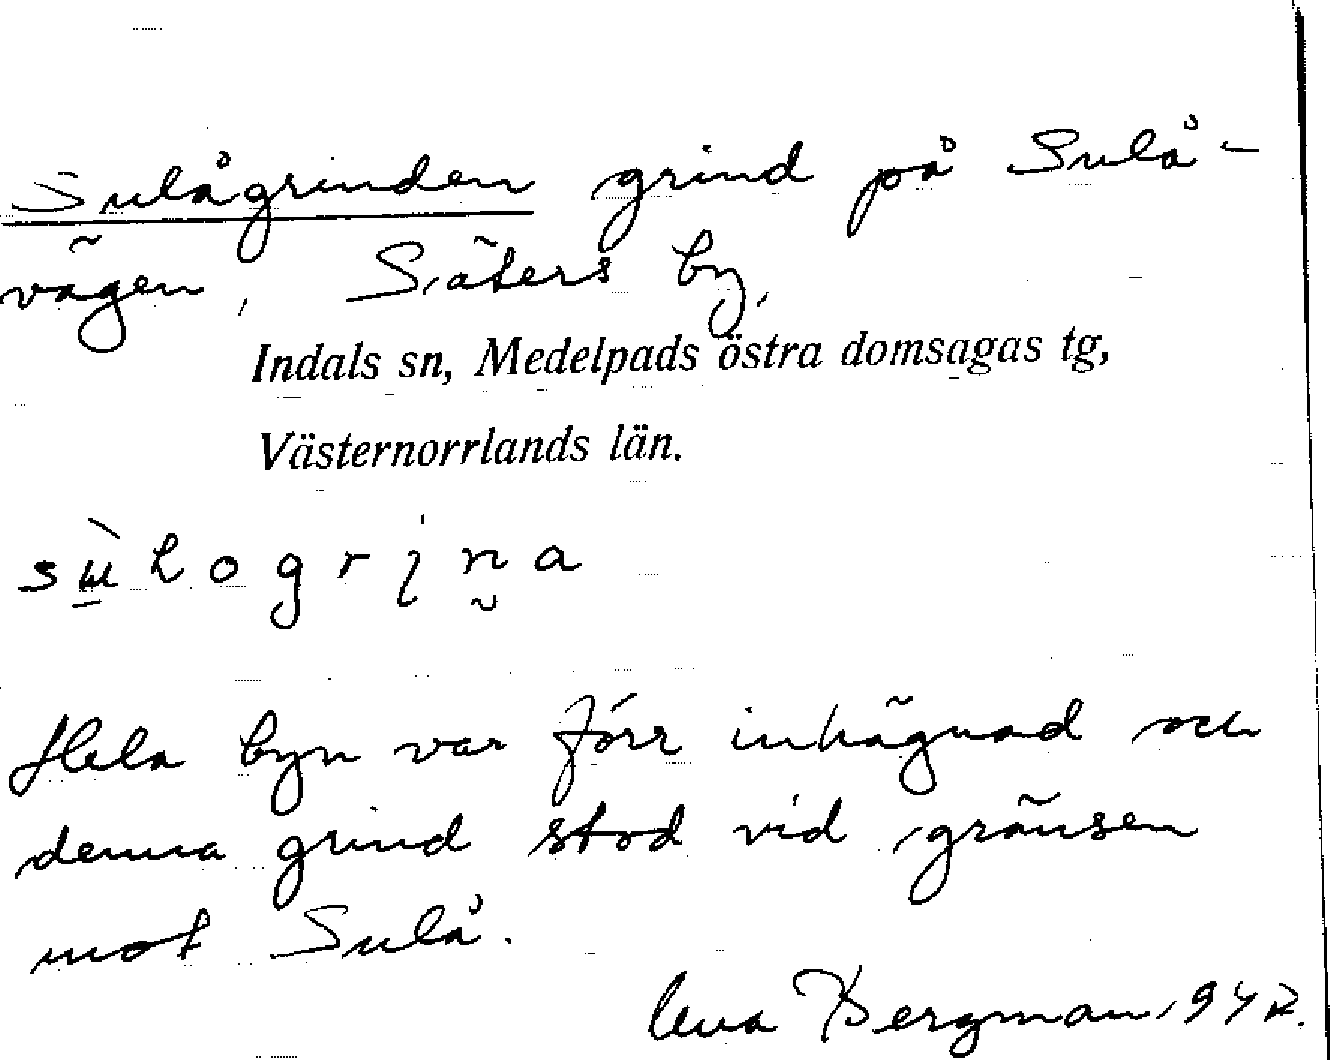 Sulågrinden grind på Sulå-
vägen, Säters by,
Indals sn, Medelpads östra domsagas tg,
Västernorrlands län.
Hela byn var förr inhägnad och
denna grind stod vid gränsen
mot Sulå.
Bergman 1942.